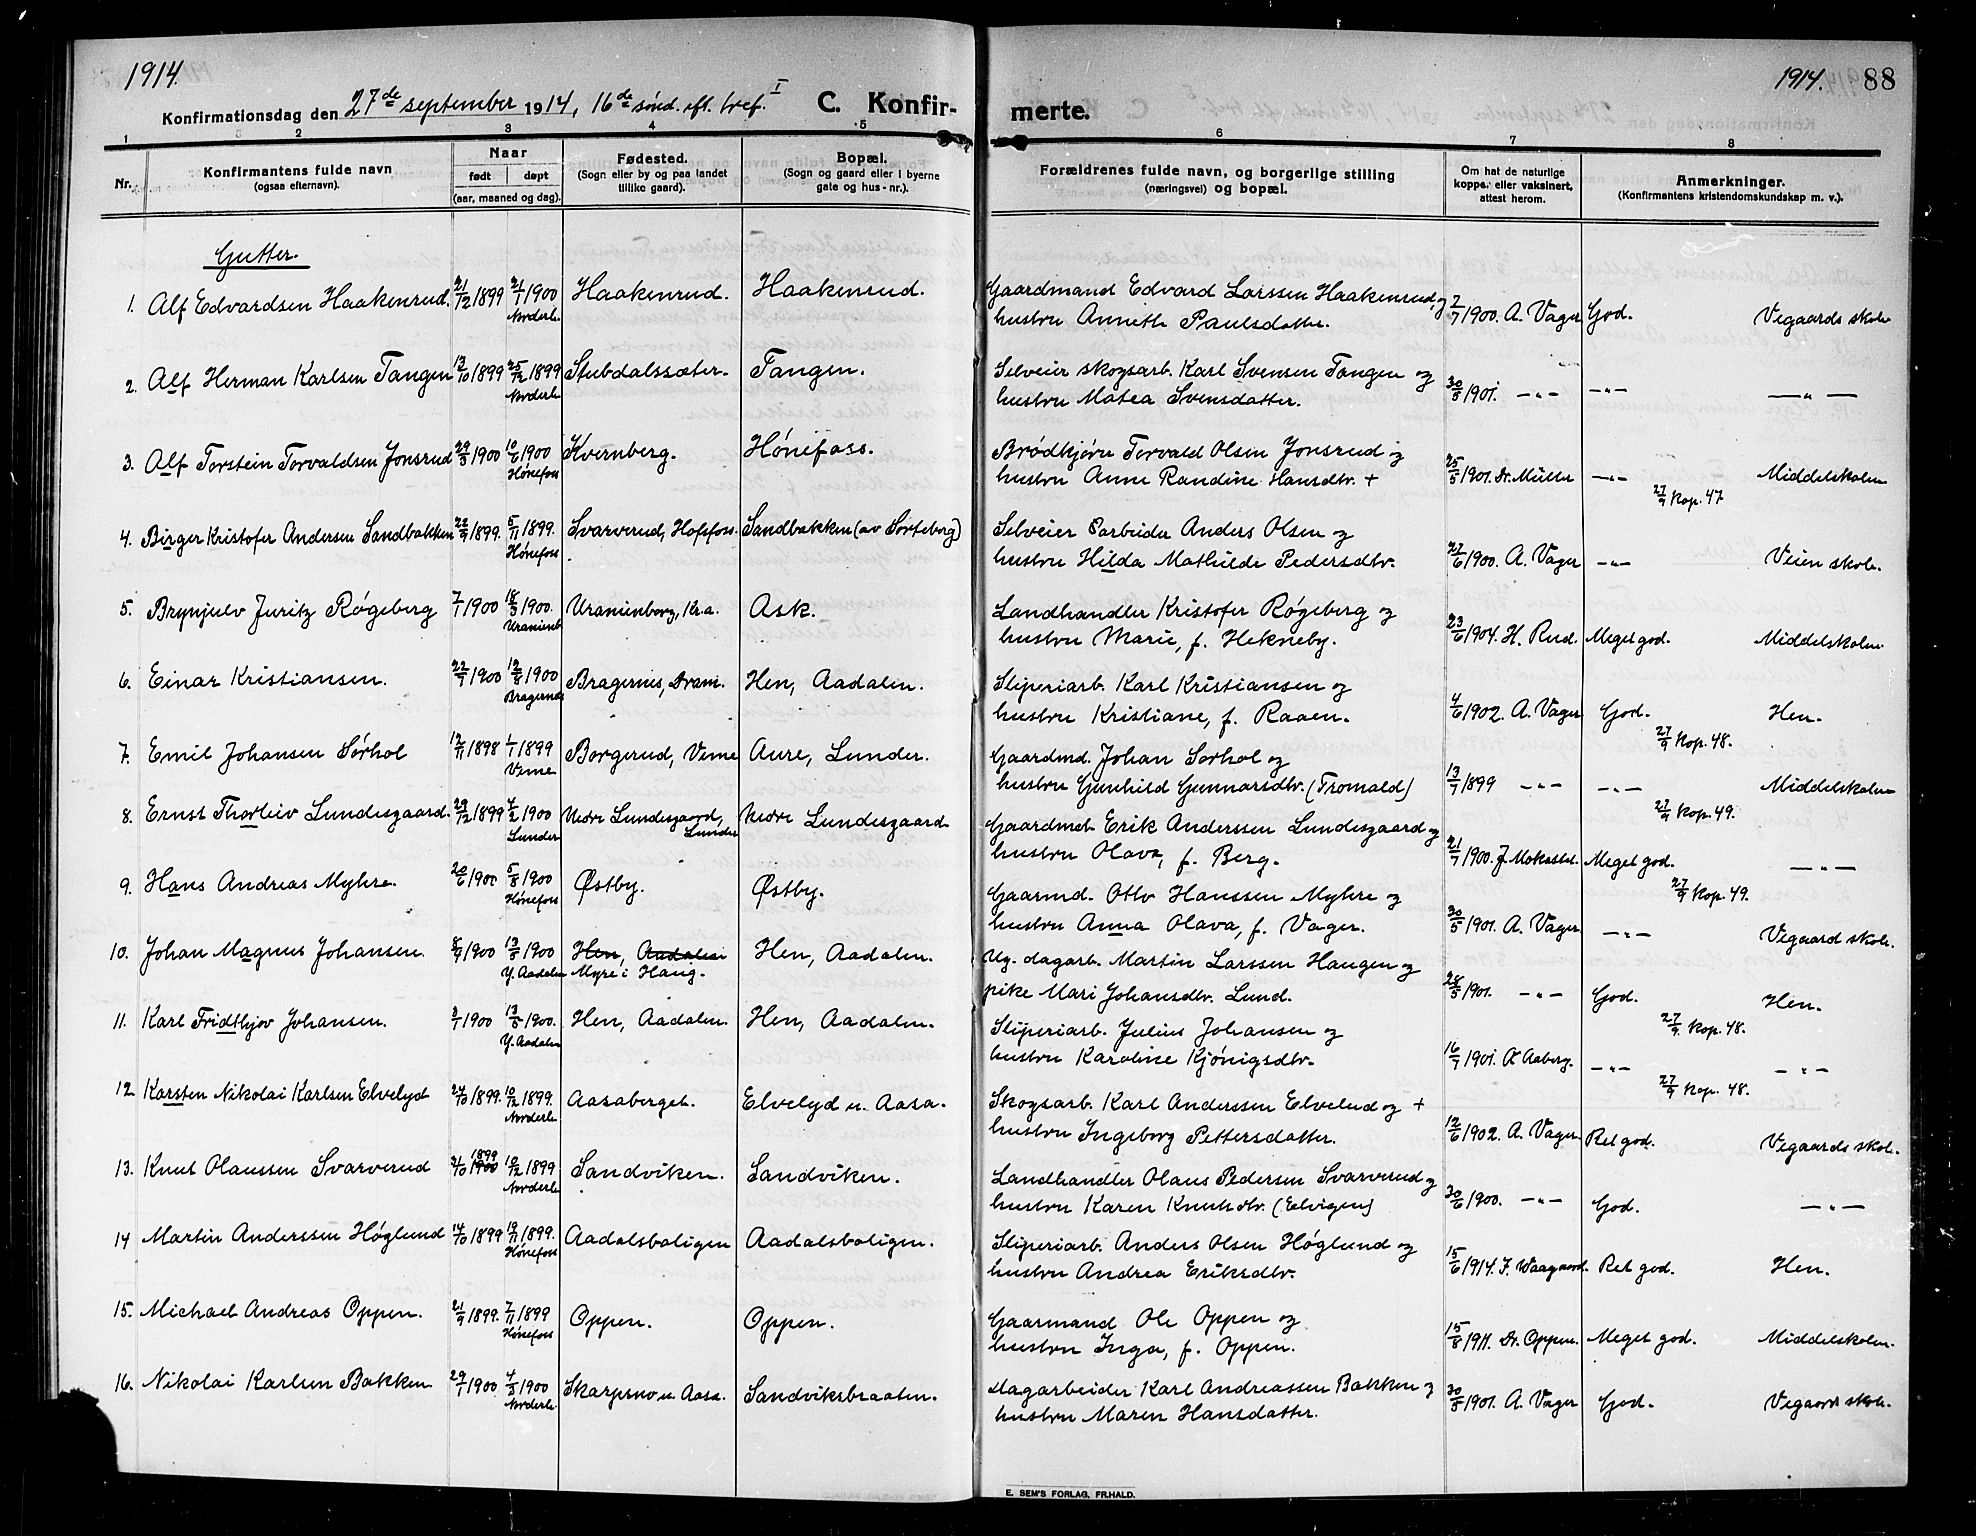 1914.
1914. 88
Konfirmationsdag den 27de september 1914, 16de sønd. eft. tref. I C. Konfir-
merte.
1 2 3 4 5 6 7 8
Nr. Konfirmantens fulde navn (ogsaa efternavn). Naar født døpt (aar, maaned og dag). Fødested. (Sogn eller by og paa landet tillike gaard). Bopæl. (Sogn og gaard eller i byerne gate og hus-nr.). Forældrenes fulde navn, og borgerlige stilling (næringsvei) og bopæl. Om hat de naturlige kopper eller vaksinert, attest herom. Anmerkninger. (Konfirmantens kristendomskundskap m. v.).
Gutter.
1. Alf Edvardsen Haakenrud. 21/12 1899 21/1 1900 Norderh. Haakenrud. Haakenrud. Gaardmand Edvard Larssen Haakenrud og
hustru Annethe Paulsdatter. 2/7 1900. A. Vager God. Vegaards skole
2. Alf Herman Karlsen Tangen 13/10 1899 25/12 1899 Norderh. Stubdalssæter. Tangen. Selveier skogsarb. Karl Svensen Tangen og
hustru Matea Svensdatter. 30/5 1901. —"— —"— —"—
3. Alf Torstein Torvaldsen Jonsrud 29/3 1900 10/6 1900 Hønefoss Kvernberg. Hønefoss. Brødkjører Torvald Olsen Jonsrud og
hustru Anne Randine Hansdtr. + 25/5 1901. Dr. Müller —"— 27/9 Kop. 47 Middelskolen
4. Birger Kristofer Andersen Sandbakken 22/9 1899. 5/11 1899. Hønefoss Svarverud, Hofsfoss. Sandbakken (av Sørteberg) Selveier Sarbeider Anders Olsen og
hustru Hilda Mathilde Pedersdtr. 27/6 1900. A. Vager —"— Veien skole.
5. Brynjulv Juritz Røgeberg 7/1 1900 18/3 1900. Uranienb. Uranienborg, Kr.a. Ask. Landhandler Kristofer Røgeberg og
hustru Marie, f. Hekneby. 23/6 1904. H. Rud. Meget god. Middelskolen
6. Einar Kristiansen. 22/7 1900 12/8 1900 Bragernes Bragernes, Dram. Hen, Aadalen. Sliperiarb. Karl Kristiansen og
hustru Kristiane, f. Raaen. 4/6 1902. A. Vager God. 27/9 Kop. 48. Hen.
7. Emil Johansen Sørhol 12/11 1898 1/1 1899 Veme Borgerud, Veme Aure, Lunder. Gaardmd. Johan Sørhol og
hustru Gunhild Gunnarsdtr. (Tromald) 13/7 1899 —"— —"— 27/9 Kop. 49. Middelskolen
8. Ernst Thorleiv Lundesgaard. 29/12 1899 4/2 1900 Lunder Nedre Lundesgaard, Lunder Nedre Lundesgaard Gaardmd. Erik Anderssen Lundesgaard og
hustru Olava, f. Berg. 21/7 1900. J. Mokastet. Meget god. 27/9 Kop. 49. —"—
9. Hans Andreas Myhre. 20/6 1900 5/8 1900 Hønefoss Østby. Østby. Gaarmd. Otto Hanssen Myhre og
hustru Anna Olava, f. Vager. 30/5 1901. A. Vager —"— Vegaard skole.
10. Johan Magnus Johansen. 8/4 1900 13/5 1900 Y. Aadalen Hen, Aadalen Myre i Haug. Hen, Aadalen. Ug. dagarb. Martin Larssen Haugen og
pike Mari Johansdtr. Lund. 28/5 1901. —"— God. 27/9. Kop. 48. Hen.
11. Karl Fridthjov Johansen. 3/1 1900 13/5 1900. Y. Aadalen Hen, Aadalen. Hen, Aadalen. Sliperiarb. Julius Johansen og
hustru Karoline Kjønigsdtr. 16/7 1901. A. Aaberg. —"— 27/9 Kop. 48. —"—
12. Karsten Nikolai Karlsen Elvelyd 24/10 1899. 10/12 1899. Norderh. Aasaberget. Elvelyd u. Aasa. Skogsarb. Karl Anderssen Elvelud og +
hustru Ingeborg Pettersdatter. 12/6 1902. A. Vager. Ret god. Vegaards skole.
13. Knut Olaussen Svarverud 21/10 1899 1900 10/12 1899 Norderh. Sandviken. Sandviken. Landhandler Olaus Pedersen Svarverud og
hustru Karen Knutsdtr. (Elvigen) 30/6 1900. —"— God. —"—
14 Martin Anderssen Høglund 14/10 1899 19/11 1899. Hønefoss Aadalsboligen Aadalsboligen. Sliperiarb. Anders Olsen Høglund og
hustru Andrea Eriksdtr. 15/6 1914. F. Waagaard. Ret god. Hen.
15. Michael Andreas Oppen. 21/9 1899. 7/11 1899 Hønefoss Oppen. Oppen. Gaarmand Ole Oppen og
hustru Inga, f. Oppen. 15/8 1911. Dr. Oppen. Meget god. Middelskolen.
16. Nikolai Karlsen Bakken 29/1 1900 4/3 1900 Norderh. Skarpsno u. Aasa. Sandviksbraaten. Dagarbeider Karl Andreassen Bakken og
hustru Maren Hansdatter. 30/5 1901. A. Vager God. Vegaard skole.
E. SEM'S FORLAG, FR.HALD.